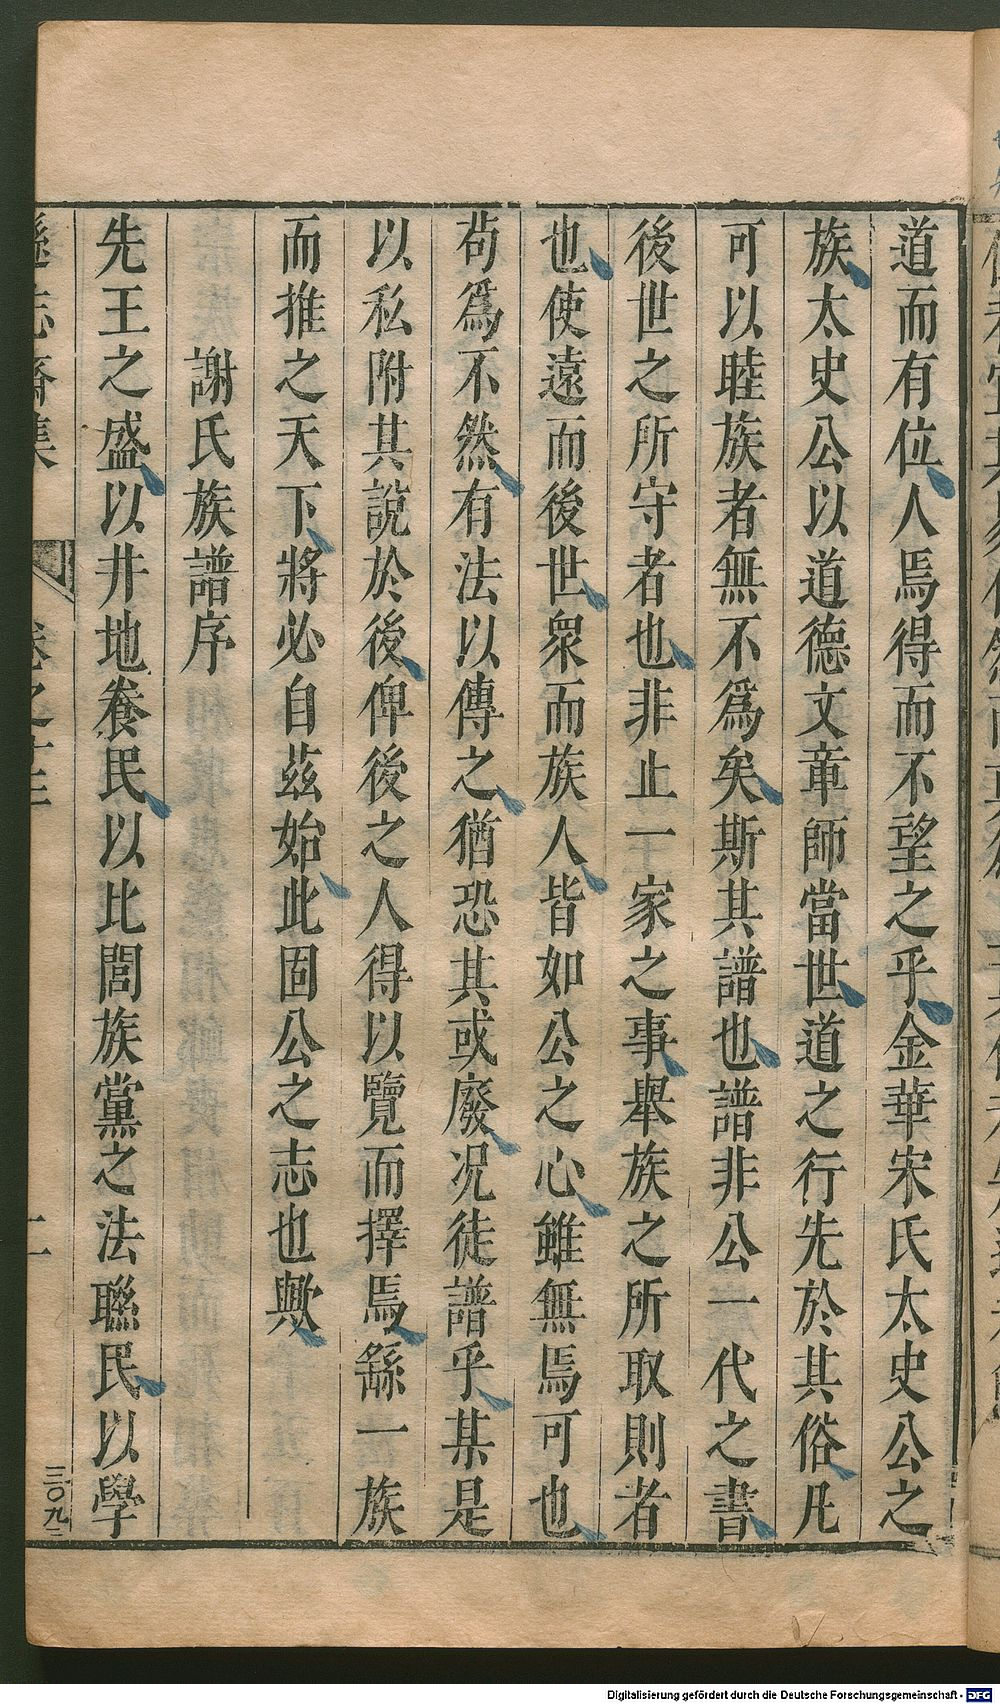 道而有位人焉得而不望之乎金華宋氏太史公之
族太史公以道德文章師當世道之行先於其俗凡
可以睦族者無不爲矣斯其譜也譜非公一代之書
後世之所守者也非止一家之事舉族之所取則者
也使遠而後世衆而族人皆如公之心雖無焉可也
苟爲不然有法以傳之猶恐其或廢况徒譜乎某是
以私附其說於後俾後之人得以覽而擇焉繇一族
而推之天下將必自茲始此固公之志也歟
謝氏族譜序
先王之盛以井地養民以比閭族黨之法聯民以學
遜志齋集 卷之十三 二
三〇九二
Digitalisierung gefördert durch die Deutsche Forschungsgemeinschaft - DFG